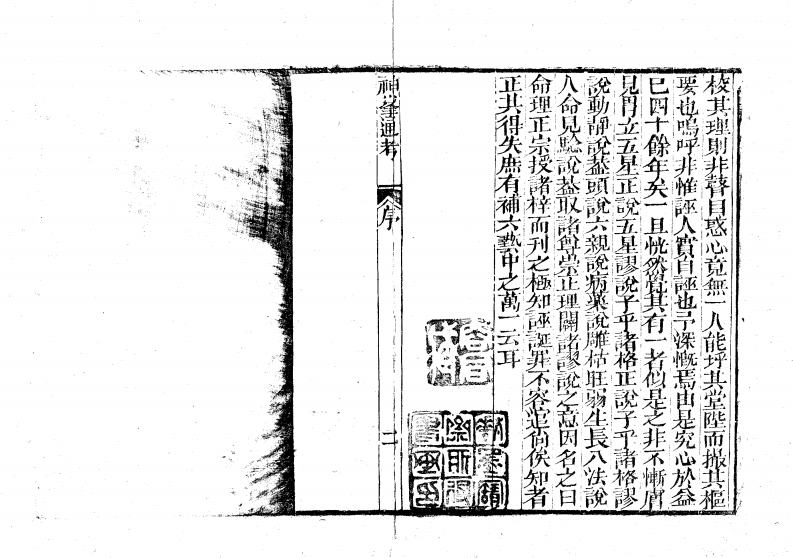 核其理則非聲目惑心竟無一人能坪其堂陛而撮其樞
要也嗚呼非惟誣人實自誣也予深慨焉由是究心於益
巳四十餘年矣一旦恍然覺其有一者似是之非不慚膚
見門立五星正說五星謬說子平諸格正說子平諸格謬
說動靜說葢頭說六親說病葯說雕枯旺弱生長八法說
人命見驗說葢取諸尊崇正理闢諸謬說之意因名之曰
命理正宗授諸梓而刊之極知誣誕罪不容逭尚俟知者
正其得失庶有補六藝中之萬一云耳
神峯通考
序
二